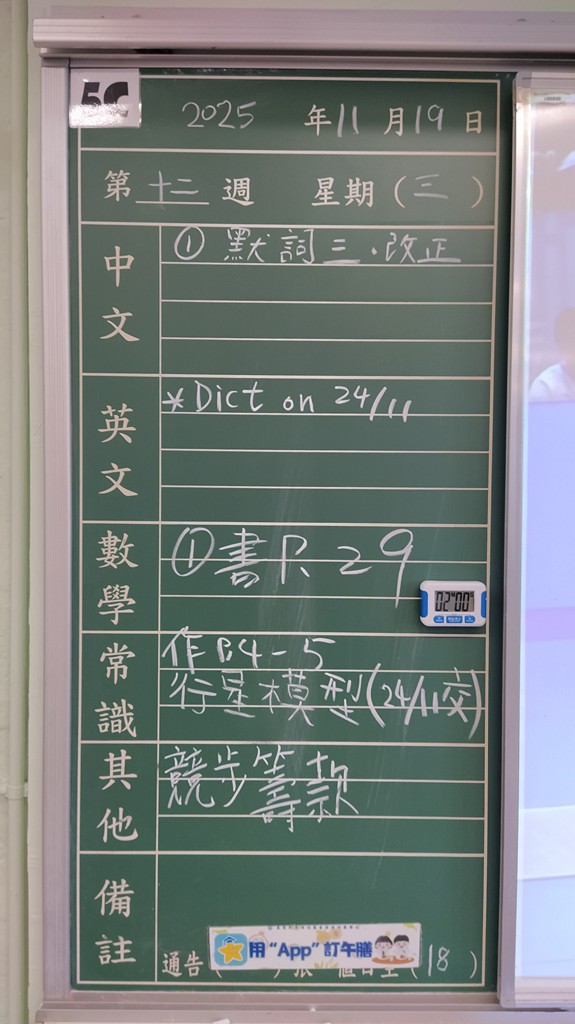 5C
2025 年 11 月 19 日
第 十二 週 星期 (三)
中文
① 默詞二.改正
英文
*Dict on 24/11
數學
① 書 P.29
02 00
常識
作 P.4-5
行星模型(24/11交)
其他
競步籌款
備註
用“App”訂午膳
通告( (18)